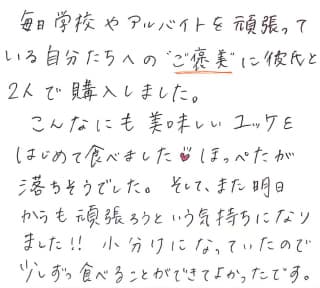 毎日学校やアルバイトを頑張って
いる自分たちへの"ご褒美"に彼氏と
2人で購入しました。
こんなにも美味しいユッケを
はじめて食べました♥ほっぺたが
落ちそうでした。そして、また明日
からも頑張ろうという気持ちになり
ました!! 小分けになっていたので
少しずつ食べることができてよかったです。